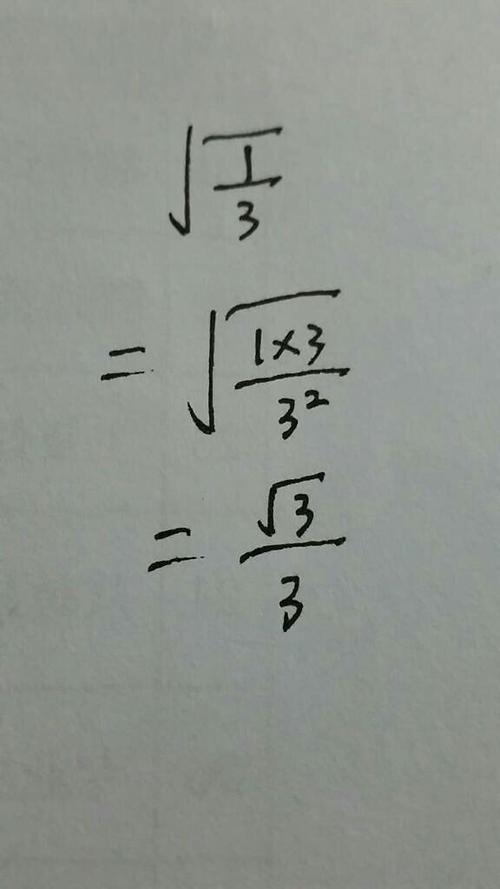 √(1/3)
= √((1×3)/3²)
= √3/3